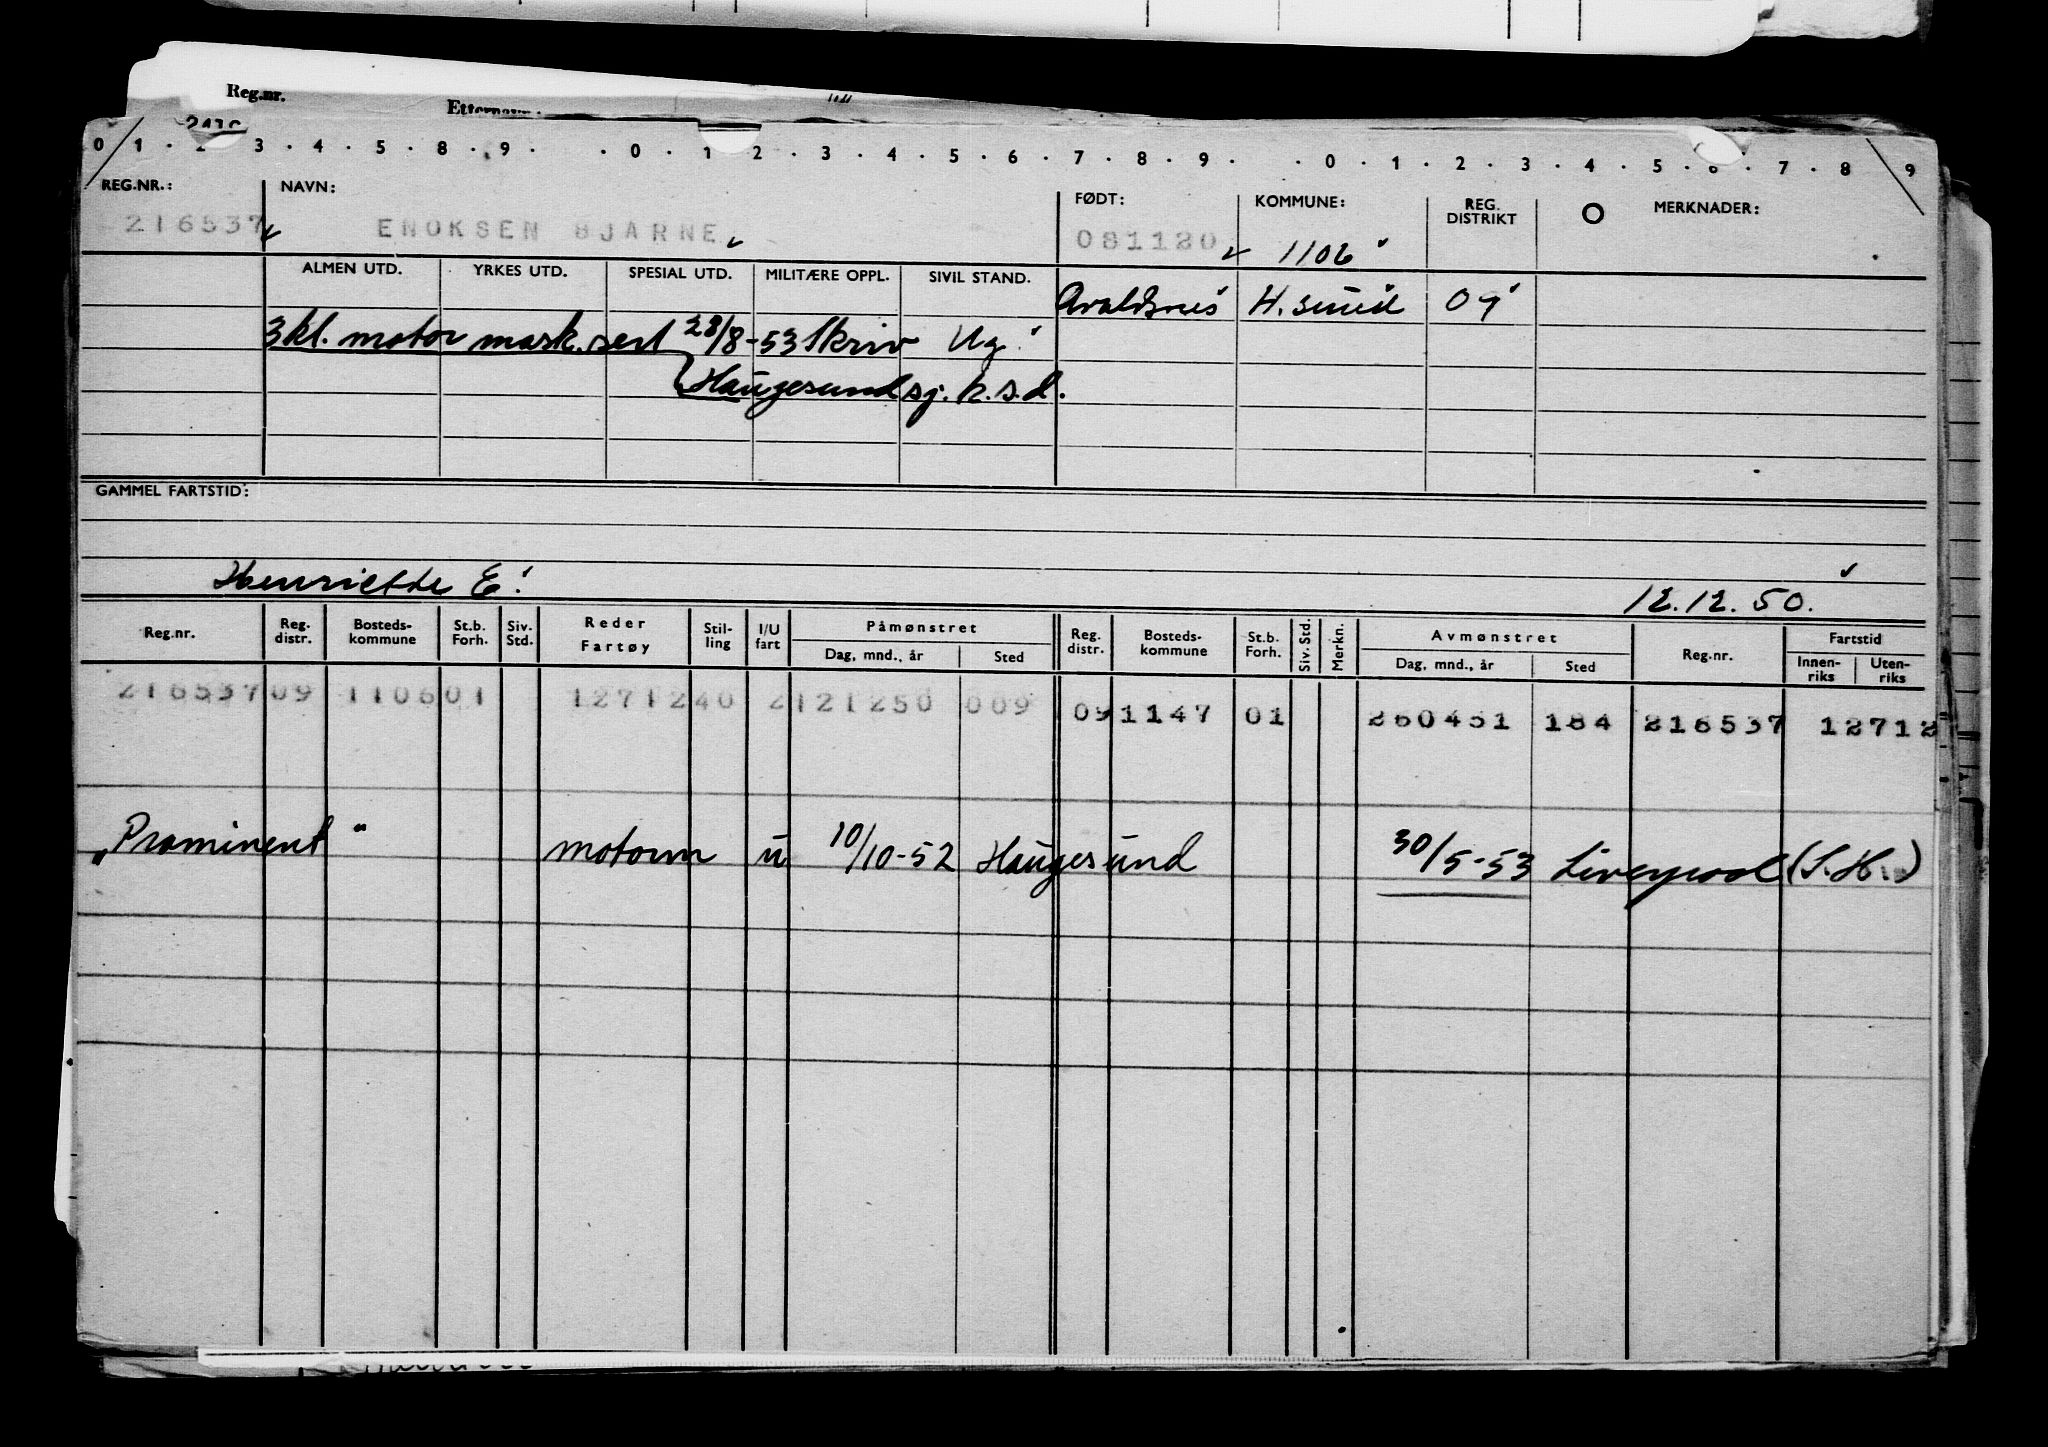 Reg.nr. Etternavn:
0 1 . 2 . 3 . 4 . 5 . 8 . 9 . . 0 . 1 . 2 . 3 . 4 . 5 . 6 . 7 . 8 . 9 . . 0 . 1 . 2 . 3 . 4 . 5 . 6 . 7 . 8 9
REG.NR.: NAVN: FØDT: KOMMUNE: REG. DISTRIKT MERKNADER:
216537 ENOKSEN BJARNE 081120 1106
ALMEN UTD. YRKES UTD. SPESIAL UTD. MILITÆRE OPPL. SIVIL STAND.
Avaldsnes H.sund 09
3 kl. motor mask.sert 28/8-53 Skriv Ug
Haugesund sj.k.s.d.
GAMMEL FARTSTID:
Henriette E. 12.12.50.
Reg.nr. Reg. distr. Bosteds-kommune St.b. Forh. Siv. Std. Reder Fartøy Stil-ling I/U fart Påmønstret Dag, mnd., år Sted Reg. distr. Bosteds-kommune St.b. Forh. Siv. Std. Merkn. Avmønstret Dag, mnd., år Sted Reg.nr. Fartstid Innen-riks Uten-riks
216537 09 1106 01 12712 40 2 121250 009 09 1147 01 260451 184 216537 12712
„Prominent" motorm u 10/10-52 Haugesund 30/5-53 Liverpool (S.H.)